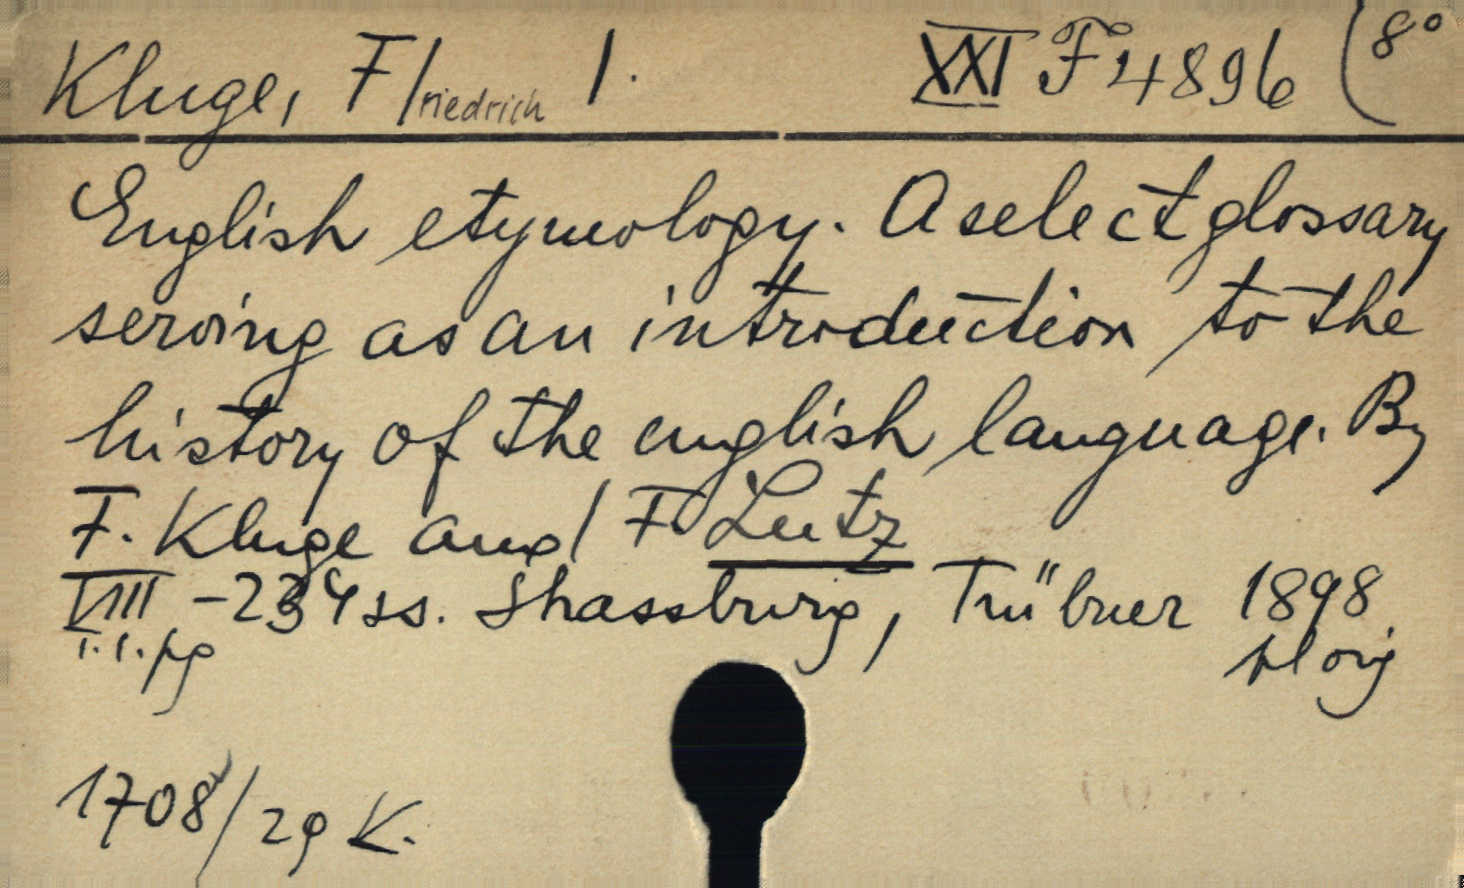 Kluge, F/riedrich 1. XXI F 4896 (8°
English etymology. A select glossary
serving as an introduction to the
history of the english language. By
F. Kluge and F. Lutz
VIII - 234 ss. Strassburg, Trübner 1898.
pł oryg
1708/29 K.